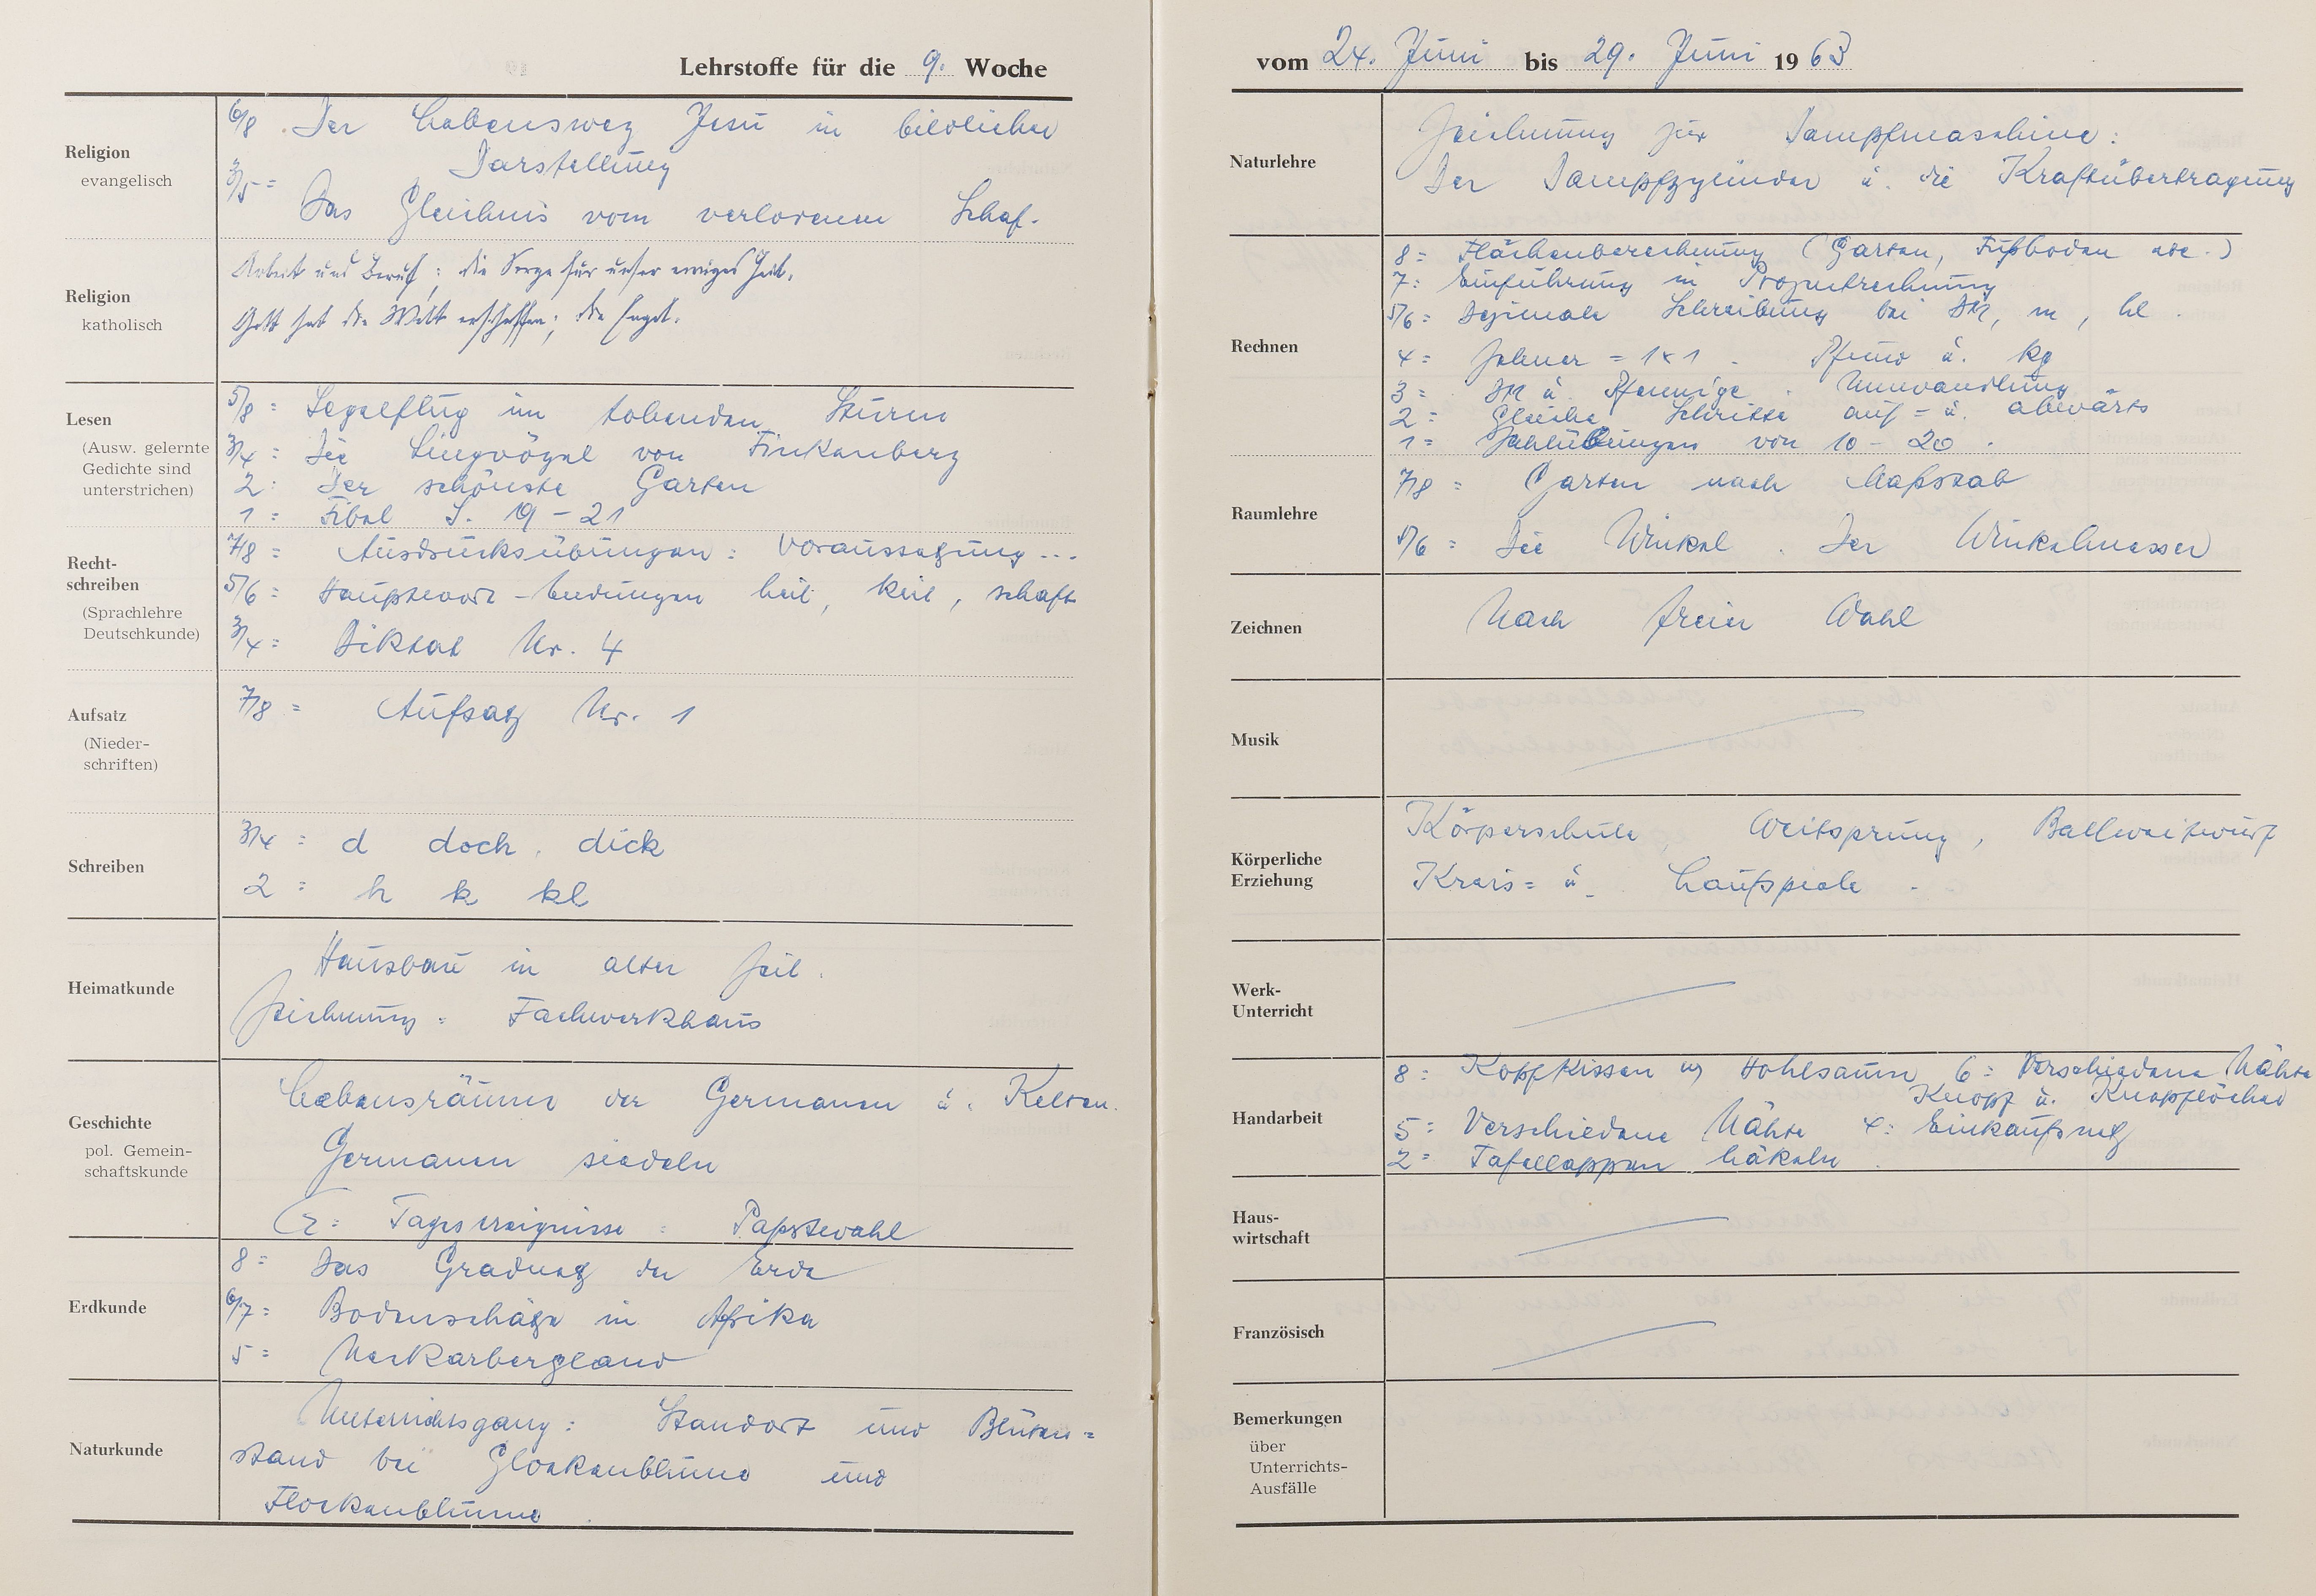 Lehrstoffe für die 9. Woche
Religion
evangelisch
6/8 Der Lebensweg Jesu in bildlicher
Darstellung
3/5 =
Das Gleichnis vom verlorenen Schaf.
Religion
katholisch
Arbeit und Beruf; die Sorge für unser ewiges Heil.
Gott hat die Welt erschaffen; die Engel.
Lesen
(Ausw. gelernte
Gedichte sind
unterstrichen)
5/8 = Segelflug im tobenden Sturm
3/4 = Die Singvögel von Finkenberg
2: Der schönste Garten
1 = Fibel S. 19 - 21
Recht-
schreiben
(Sprachlehre
Deutschkunde)
7/8 = Ausdrucksübungen: Voraussagung ...
5/6 = Hauptwort-Endungen heit, keit, schaft
3/4 = Diktat Nr. 4
Aufsatz
(Nieder-
schriften)
7/8 = Aufsatz Nr. 1
Schreiben
3/4 = d doch, dick
2 = h k kl
Heimatkunde
Hausbau in alter Zeit.
Zeichnung = Fachwerkhaus
Geschichte
pol. Gemein-
schaftskunde
Lebensräume der Germanen u. Kelten.
Germanen siedeln
G: Tagesereignisse = Papstwahl
Erdkunde
8 = Das Gradnetz der Erde
6/7 = Bodenschätze in Afrika
5 = Neckarbergland
Naturkunde
Unterrichtsgang: Standort und Blüten=
stand bei Glockenblume und
Flockenblume
vom 24. Juni bis 29. Juni 1963
Naturlehre
Zeichnung zur Dampfmaschine:
Der Dampfzylinder u. die Kraftübertragung
Rechnen
8 = Flächenberechnung (Garten, Fußboden etc.)
7: Einführung in Prozentrechnung
5/6 = Dezimale Schreibung bei DM, m, hl.
4 = Zehner = 1x1 - Pfund u. kg
3 = DM u. Pfennige. Umwandlung
2 = Gleiche Schritte auf = u. abwärts
1 = Zahlübungen von 10 - 20.
Raumlehre
7/8 = Garten nach Maßstab
5/6 = Die Winkel. Der Winkelmesser
Zeichnen
Nach freier Wahl
Musik
Körperliche
Erziehung
Körperschule, Weitsprung, Ballweitwurf
Kreis = u. Laufspiele
Werk-
Unterricht
Handarbeit
8: Kopfkissen m. Hohlsaum 6 = Verschiedene Nähte
Knopf u. Knopflöcher
5: Verschiedene Nähte 4: Einkaufsnetz
2 = Tafellappen häkeln
Haus-
wirtschaft
Französisch
Bemerkungen
über
Unterrichts-
Ausfälle